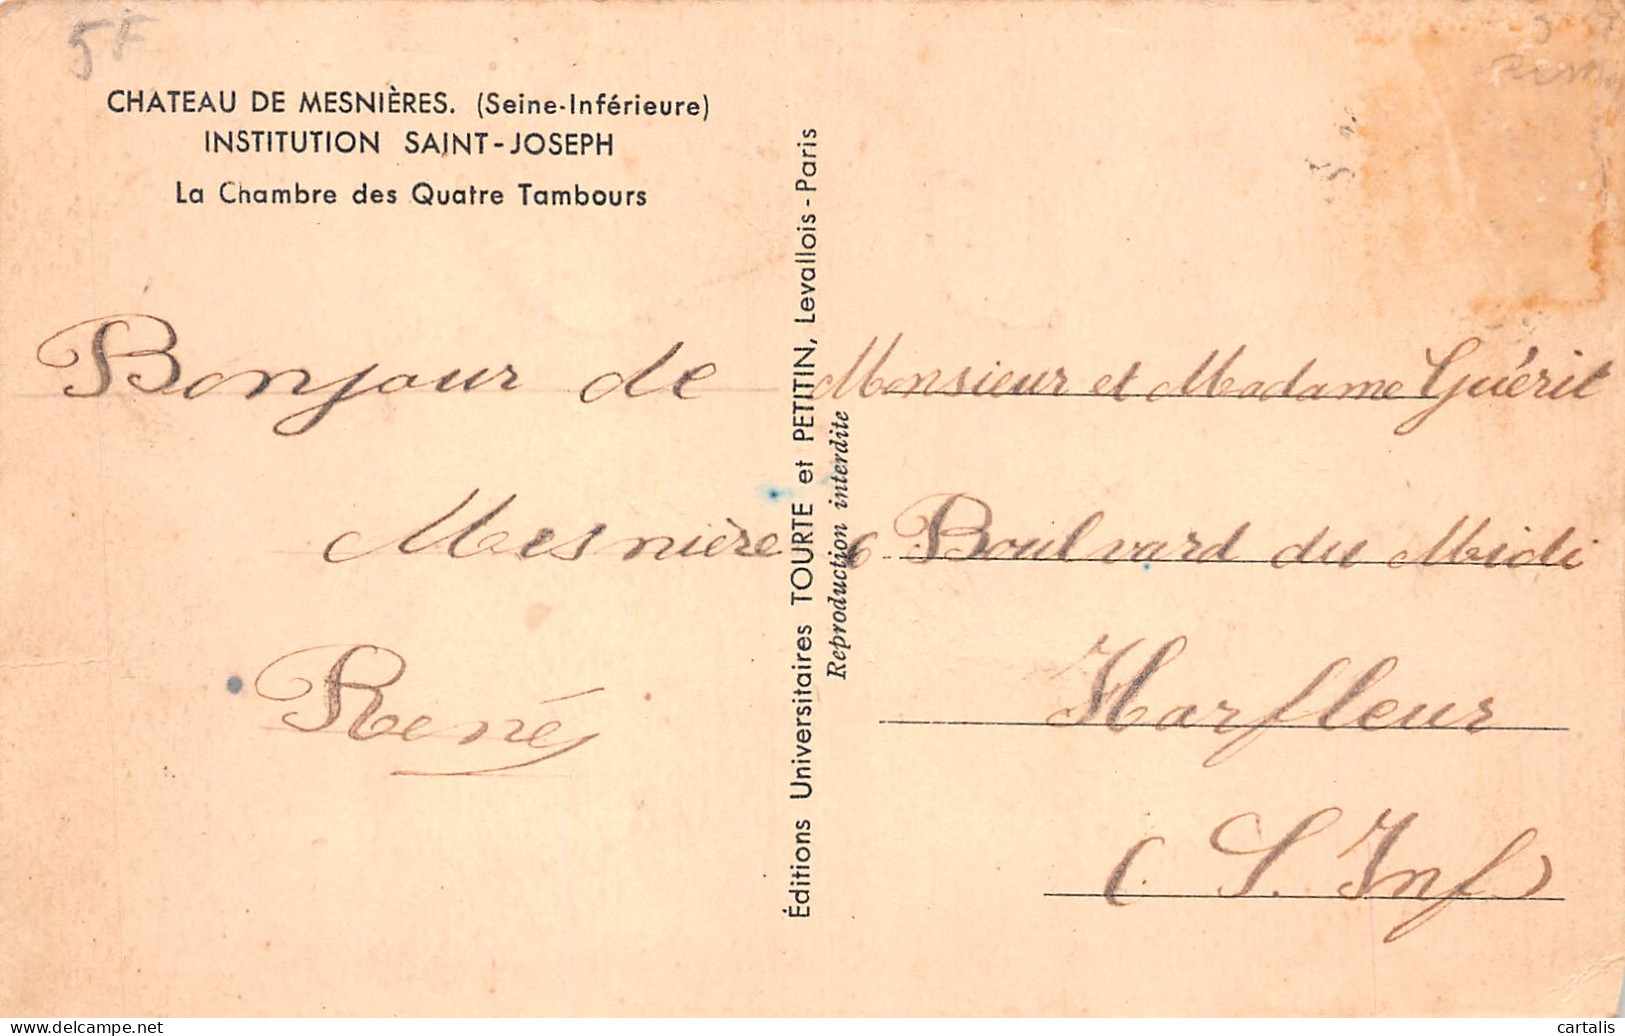 5F
CHATEAU DE MESNIÈRES. (Seine-Inférieure)
INSTITUTION SAINT-JOSEPH
La Chambre des Quatre Tambours
Bonjour de
Mesnière
René
Éditions Universitaires TOURTE et PETITIN, Levallois-Paris
Reproduction interdite
Monsieur et Madame Guérit
6 Boulvard du Midi
Harfleur
(S. Inf)
delcampe.net
cartalis